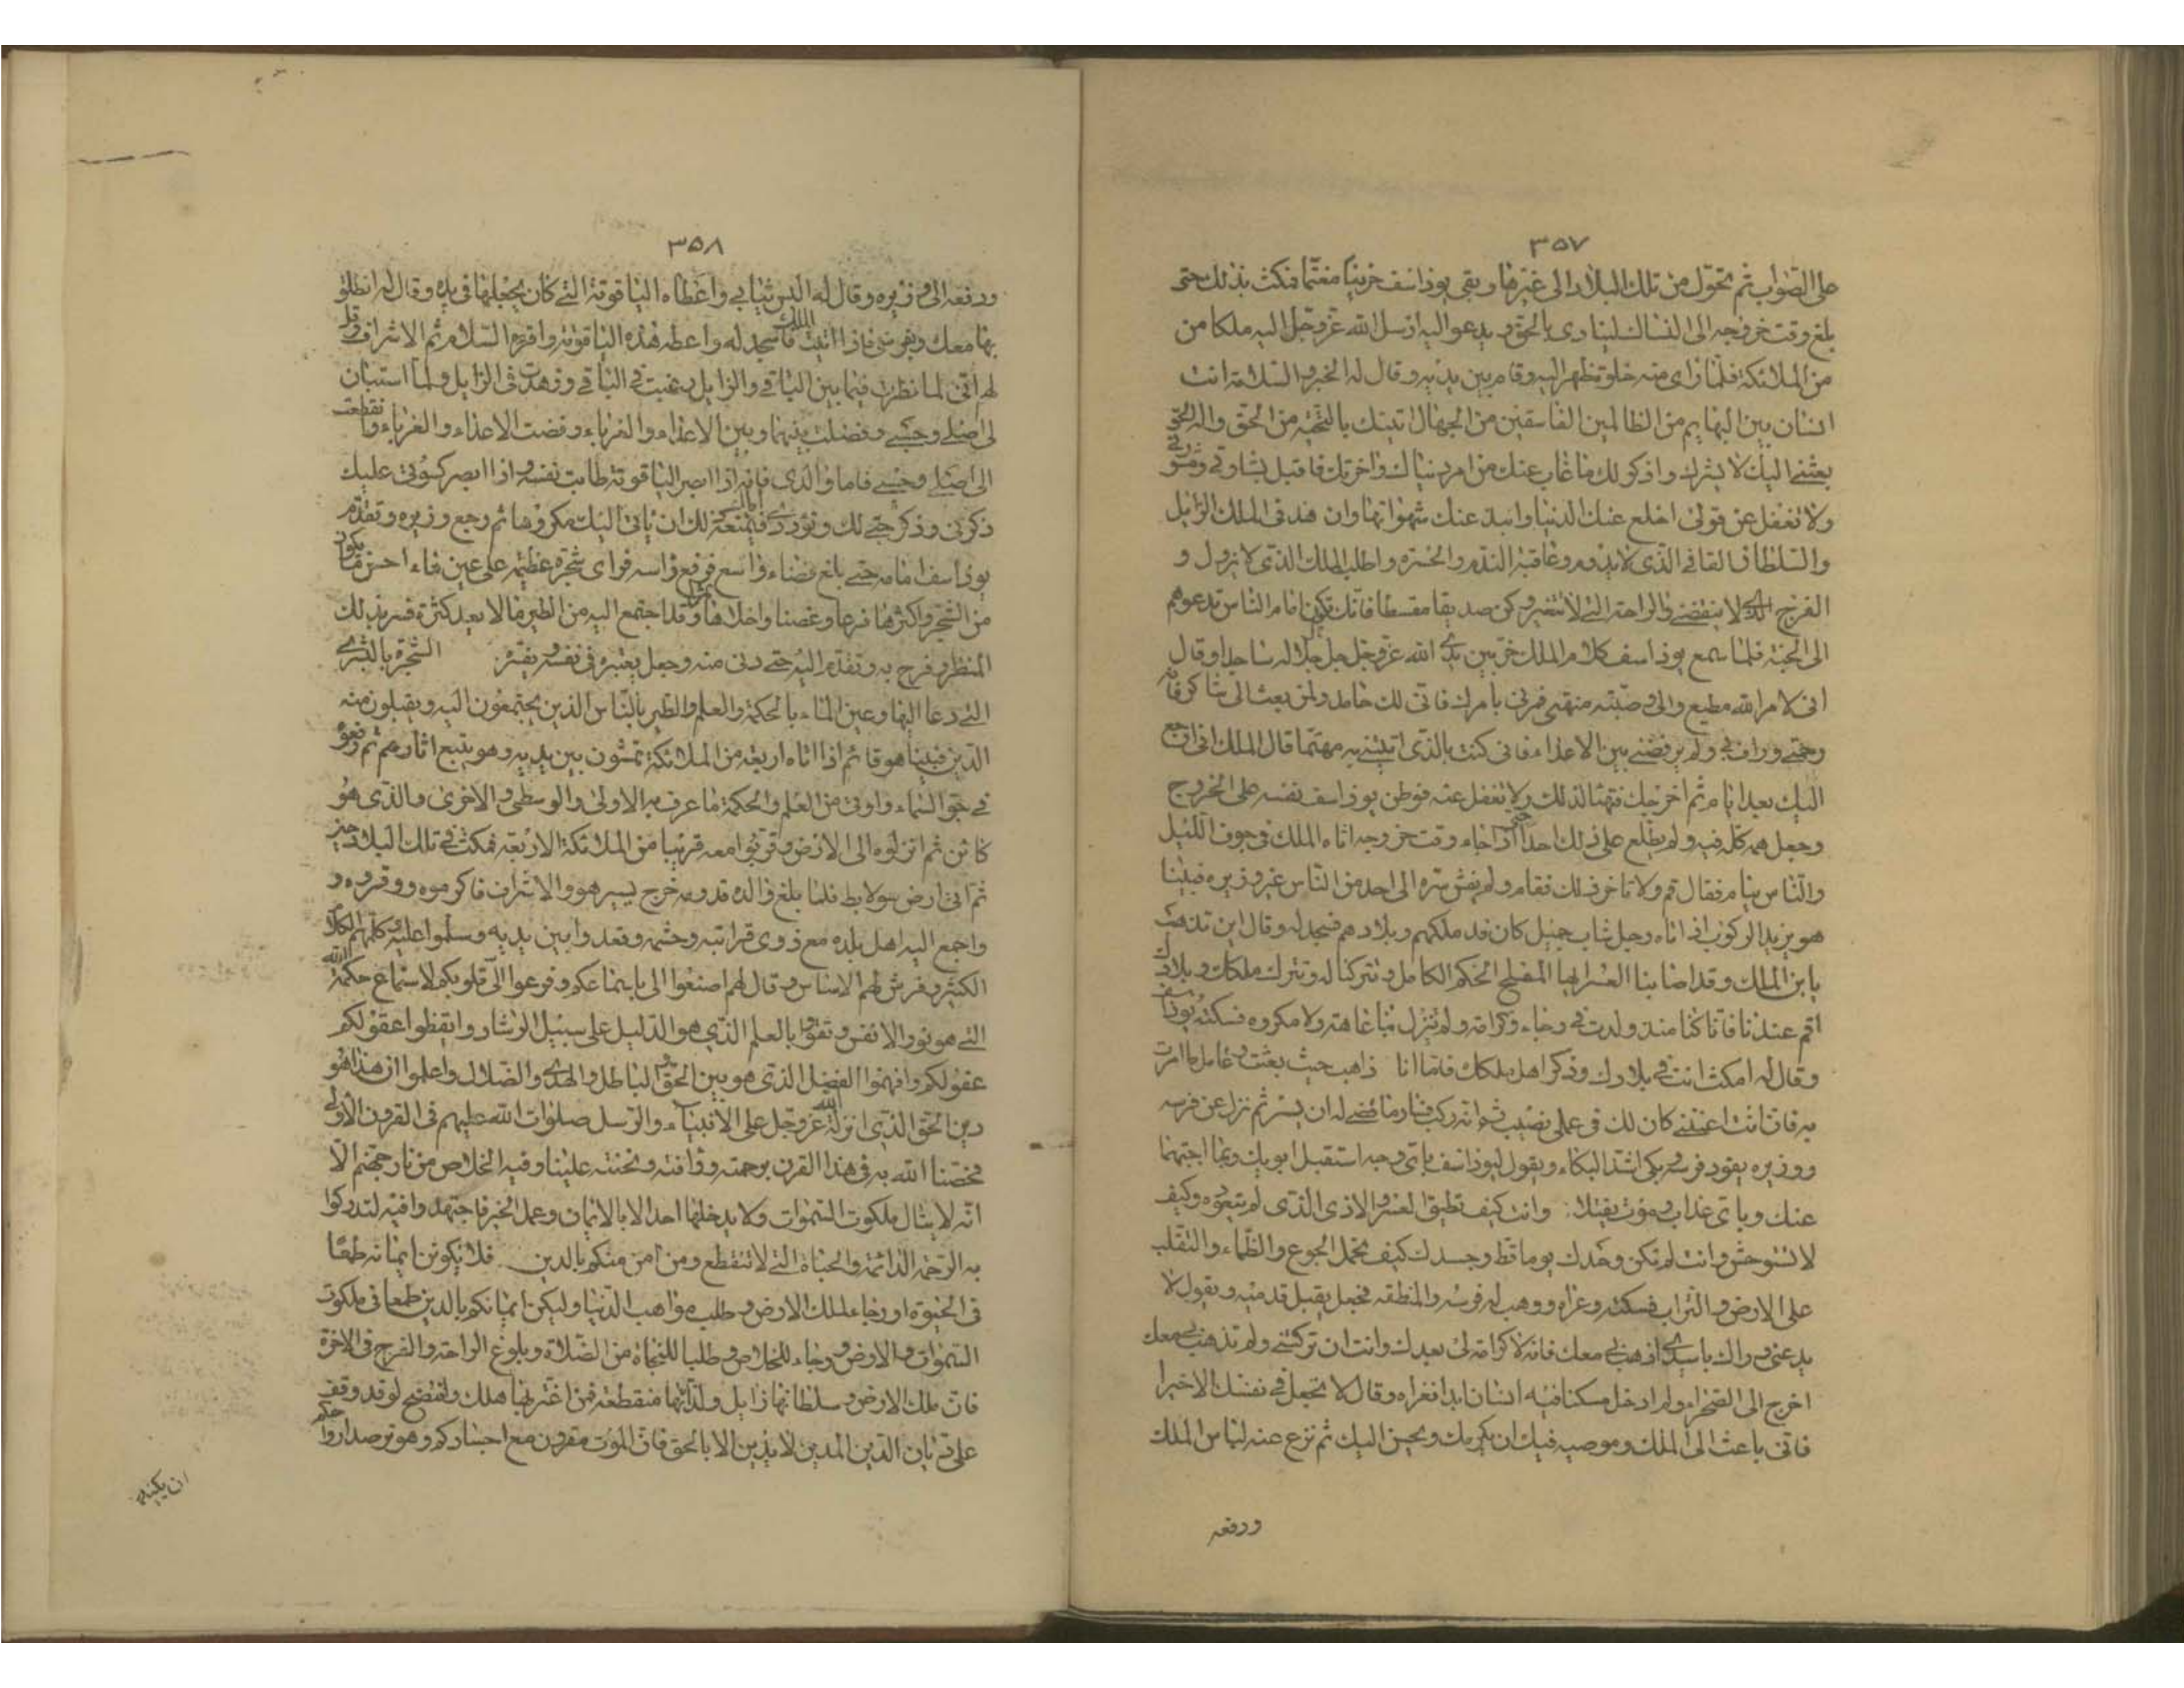 ٣٥٧
على الصواب ثم تحول من تلك البلاد الى غيرها وبقى يوذاسف حزينا مغتما فمكث بذلك حتى
بلغ وقت خروجه الى النساك لينادى بالحق و يدعو اليه ارسل الله عز وجل اليه ملكا من
من الملائكة فلما راى منه خلوة ظهر اليه وقام بين يديه وقال له الخير والسلامة انت
انسان بين البهايم من الظالمين الفاسقين من الجهال اتيتك بالتحية من الحق واله الحق
بعثنى اليك لابشرك واذكر لك ما غاب عنك من امر دنياك واخرتك فاقبل بشارتى ومشورتى
ولا تغفل عن قولى اخلع عنك الدنيا وانبذ عنك شهواتها وازهد فى الملك الزايل
والسلطان الفانى الذى لا يدوم وعاقبة الندم والحسرة واطلب الملك الذى لا يزول و
الفرح الذى لا ينقضى والراحة التى لا تتغير وكن صديقا مقسطا فانك تكون امام الناس تدعوهم
الى الجنة فلما سمع يوذاسف كلام الملك خر بين يدى الله عز وجل جل جلاله ساجدا وقال
انى لامر الله مطيع والى وصيته منتهى فمرنى بامرك فانى لك حامد ولمن بعثك الى شاكر فانه
رحمنى وراف بى ولم يرفضنى بين الاعداء فانى كنت بالذى اتيتنى به مهتما قال الملك انى ارجع
اليك بعد ايام ثم اخرجك فتهيا لذلك ولا تغفل عنه فوطن يوذاسف نفسه على الخروج
وجعل همه كله فيه ولم يطلع على ذلك احدا حتى اذا جاء وقت خروجه اتاه الملك فى جوف الليل
والناس نيام فقال قم ولا تاخر ذلك فقام ولم يفش سره الى احد من الناس غير وزيره فبينا
هو يريد الركوب اذ اتاه رجل شاب جميل كان قد ملكهم وبلادهم فسجد له وقال اين تذهب
يابن الملك وقد اصابنا العسر ايها المصلح الحكيم الكامل وتتركنا له وتترك ملكك وبلادك
اقم عندنا فانا كنا منذ ولدت فى رخاء وكرامة ولم تنزل بنا عاهة ولا مكروه فسكته يوذاسف
وقال له امكث انت فى بلادك وذكر اهل ملكك فاما انا ذاهب حيث بعثت وعامل ما امرت
به فان انت اعنتنى كان لك فى عملى نصيب ثم انه ركب فسار ما قضى له ان يسير ثم نزل عن فرسه
ووزيره يقود فرسه ويبكى اشد البكاء ويقول ليوذاسف باى وجه استقبل ابويك وبما اجيبهما
عنك وباى عذاب وموت يقتلا: وانت كيف تطيق العسر والاذى الذى لم تتعوده وكيف
لا تستوحش وانت لم تكن وحدك يوما قط وجسدك كيف تحمل الجوع والظماء والتقلب
على الارض و التراب فسكته وعزاه ووهب له فرسه والمنطقه فجعل يقبل قدميه ويقول لا
تدعنى وراك ياسيدى اذهب بى معك فانه لا كرامة لى بعدك وانت ان تركتنى ولم تذهب بى معك
اخرج الى الصحراء ولم ادخل مسكنا فيه انسان ابدا فعزاه وقال لا تجعل فى نفسك الا خيرا
فانى باعث الى الملك وموصيه فيك ان يكرمك ويحسن اليك ثم نزع عنه لباس الملك
ودفعه
٣٥٨
ودفعه الى وزيره وقال له البس ثيابى واعطاه الياقوتة التى كان يجعلها فى يده وقال له انطلق
بها معك وبفرسى فاذا اتيت الملك فاسجد له واعطه هذه الياقوتة واقرئه السلام ثم الاشراف وقل
لهم انى لما نظرت فيما بين الباقى والزايل رغبت فى الباقى وزهدت فى الزايل ولما استبان
لى اصلى وحسبى وفصلت بينهما وبين الاعداء والغرباء رفضت الاعداء والغرباء وانقطعت
الى اصلى وحسبى فاما والدى فانه اذا ابصر الياقوتة طابت نفسه واذا ابصر كسوتى عليك
ذكرنى وذكر حبى لك ومودتى اياك فيمنعه ذلك ان ياتى اليك مكروها ثم رجع وزيره وتقدم
يوذاسف امامه حتى بلغ فضاء واسع فرفع راسه فراى شجرة عظيمة على عين ماء احسن ما يكون
من الشجر واكثرها فرعا وغصنا واحلاها وقد اجتمع اليه من الطير مالا يعد كثرة فسر بذلك
المنظر وفرح به وتقدم اليه حتى دنى منه وجعل يعبره فى نفسه ويفسره الشجرة بالبشرى
التى دعا اليها وعين الماء بالحكمة والعلم والطير بالناس الذين يجتمعون اليه ويقبلون منه
الدين فبينا هو قائم اذا اتاه اربعة من الملائكة يمشون بين يديه وهو يتبع اثارهم ثم رفعوه
فى جو السماء واوتى من العلم والحكمة ما عرف به الاولى والوسطى والاخرى والذى هو
كائن ثم انزلوه الى الارض وقربوا معه قرينا من الملائكة الاربعة فمكث فى تلك البلاد حينا
ثم اتى ارض سولابط فلما بلغ والده قدومه خرج يسير هو والاشراف فاكرموه ووقروه و
واجمع اليه اهل بلده مع ذوى قرابته وحشمه وقعدوا بين يديه وسلموا عليه وكلمهم الكلام
الكثير وفرش لهم الاساس وقال لهم اصنعوا الى باسماعكم وفرغوا الى قلوبكم لاستماع حكمة الله
التى هو نور الانفس وتقووا بالعلم الذى هو الدليل على سبيل الرشاد وايقظوا عقولكم
عقولكم وافهموا الفصل الذى هو بين الحق والباطل والهدى والضلال واعلموا ان هذا هو
دين الحق الذى انزله الله عز وجل على الانبياء والرسل صلوات الله عليهم فى القرون الاولى
فخصنا الله به فى هذا القرن برحمته ورافته وتحننه علينا وفيه الخلاص من نار جهنم الا
انه لا ينال ملكوت السموات ولا يدخلها احد الا بالايمان وعمل الخير فاجتهدوا فيه لتدركوا
به الراحة الدائمة والحياة التى لا تنقطع ومن امن منكم بالدين فلا يكونن ايمانه طمعا
فى الحيوة اورجاء لملك الارض وطلب مواهب الدنيا وليكن ايمانكم بالدين طمعا فى ملكوت
السموات والارض ورجاء للخلاص وطلبا للنجاة من الضلالة وبلوغ الراحة والفرج فى الاخرة
فان ملك الارض وسلطانها زايل ولذاتها منقطعة فمن اغتر بها هلك وافتضح لو قد وقف
على ديان الدين المدين لا يدين الا بالحق فان الموت مقرون مع اجسادكم وهو يرصد ارواحكم
ان يكبتها